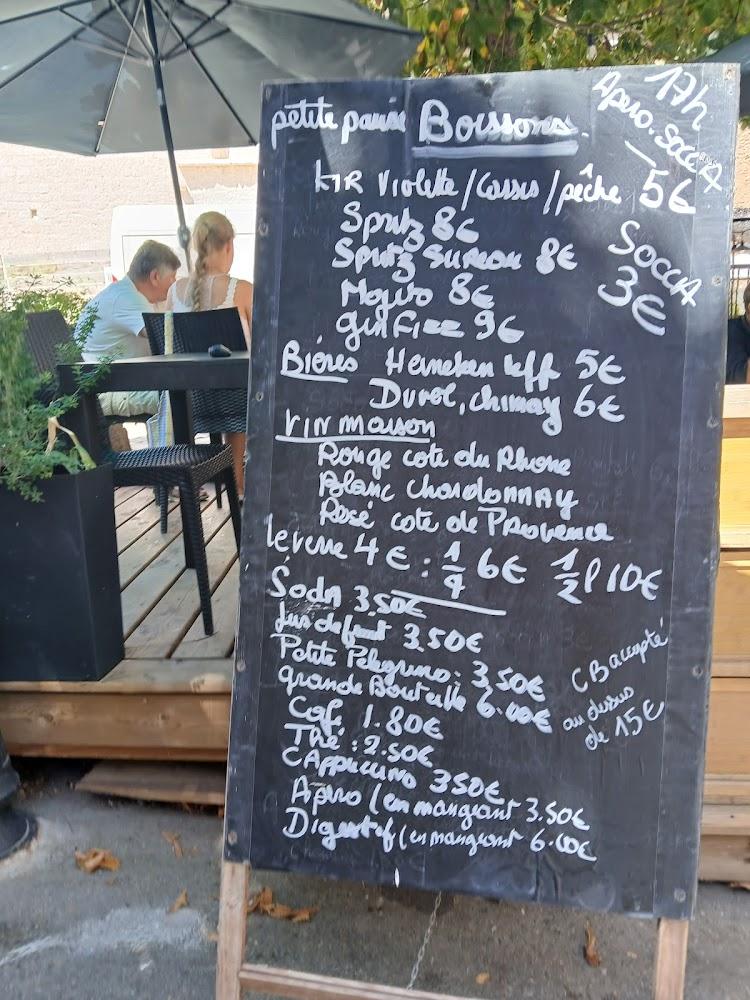 petite pause Boissons.
17h
Apero-Socca
5€
KIR Violette/Cassis/pêche
SOCCA
3€
Spritz 8€
Spritz Sureau 8€
Mojito 8€
Gin Fizz 9€
Bières Heineken leff 5€
Duvel, chimay 6€
VIN maison
Rouge cote du Rhone
Blanc Chardonnay
Rosé cote de Provence
le verre 4€ : 1/4 6€ 1/2 l 10€
Soda 3.50€
Jus de fruit 3.50€
Petite Pelegrino: 3.50€
grande Bouteille 6.00€
CB accepté
au dessus
de 15€
Caf. 1.80€
Thé : 2.50€
CAppuccino 3.50€
Apero (en mangeant 3.50€
Digestif (en mangeant 6.00€